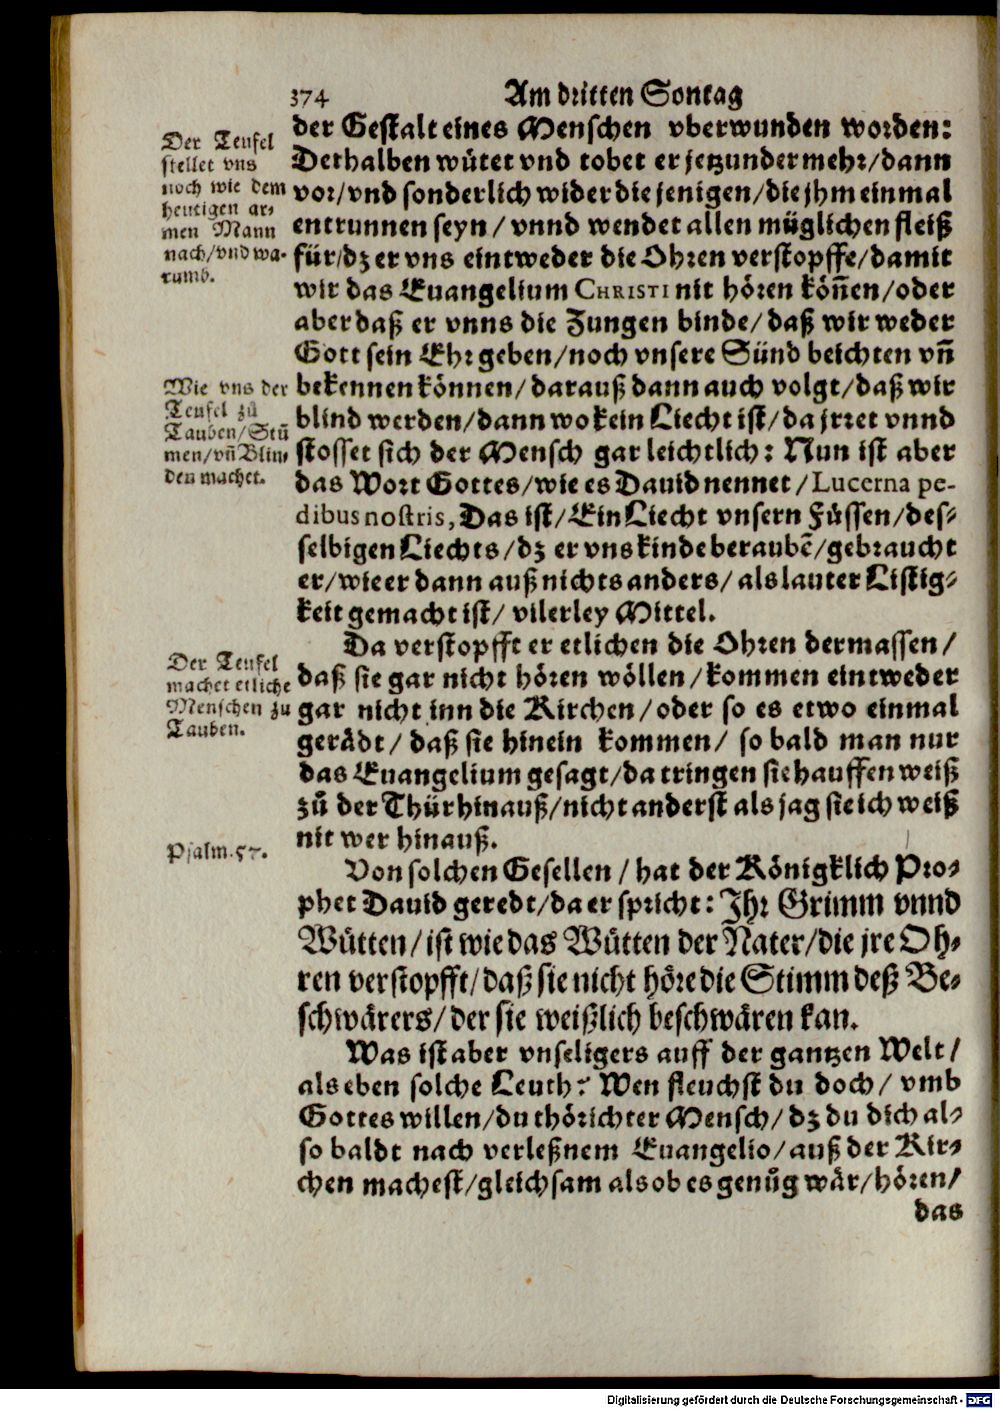 374 Am dritten Sontag
der Gestalt eines Menschen vberwunden worden:
Dethalben wütet vnd tobet er jetzunder mehr/dann
vor/vnd sonderlich wider die jenigen/die jhm einmal
entrunnen seyn/ vnnd wendet allen müglichen fleiß
für/dz er vns eintweder die Ohren verstopffe/damit
wir das Euangelium CHRISTI nit hören koͤñen/oder
aber daß er vnns die Zungen binde/daß wir weder
Gott sein Ehr geben/noch vnsere Sünd beichten vñ
bekennen können/darauß dann auch volgt/daß wir
blind werden/dann wo kein Liecht ist/da jrret vnnd
stosset sich der Mensch gar leichtlich: Nun ist aber
das Wort Gottes/wie es Dauid nennet/Lucerna pe-
dibus nostris, Das ist/Ein Liecht vnsern Füssen/des-
selbigen Liechts/dz er vns kinde beraubẽ/gebraucht
er/wie er dann auß nichts anders/als lauter Listig-
keit gemacht ist/vilerley Mittel.
Da verstopfft er etlichen die Ohren dermassen/
daß sie gar nicht hören wöllen/kommen eintweder
gar nicht inn die Kirchen/oder so es etwo einmal
gerädt/daß sie hinein kommen/ so bald man nur
das Euangelium gesagt/da tringen sie hauffenweiß
zů der Thür hinauß/nicht anderst als jag sie ich weiß
nit wer hinauß.
Von solchen Gesellen/hat der Königklich Pro-
phet Dauid geredt/da er spricht: Ihr Grimm vnnd
Wütten/ist wie das Wütten der Nater/die jre Oh-
ren verstopfft/daß sie nicht höre die Stimm deß Be-
schwärers/der sie weißlich beschwären kan.
Was ist aber vnseligers auff der gantzen Welt/
als eben solche Leuth? Wen fleuchst du doch/vmb
Gottes willen/du thörichter Mensch/dz du dich al-
so baldt nach verleßnem Euangelio/auß der Kir-
chen machest/gleichsam als ob es genůg wär/hören/
das
Der Teufel
stellet vns
noch wie dem
heutigen ar-
men Mann
nach/vnd wa-
rumb.
Wie vns der
Teufel zů
Tauben/Stũ
men/vñ Blin-
den machet.
Der Teufel
machet etliche
Menschen zu
Tauben.
Psalm.57.
Digitalisierung gefördert durch die Deutsche Forschungsgemeinschaft - DFG